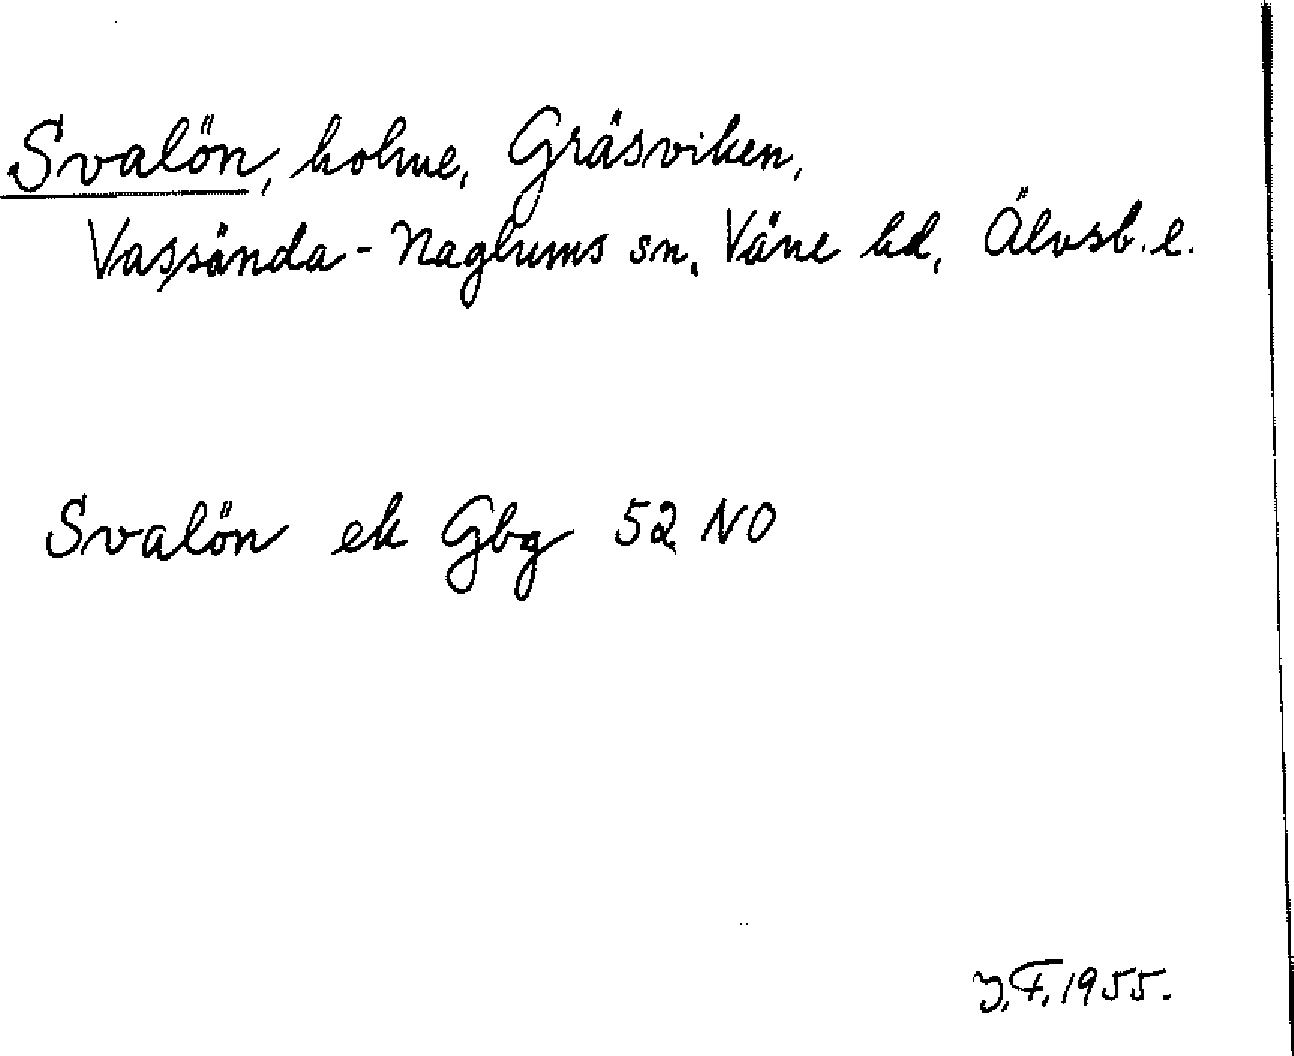 Svalön, holme, Gräsviken,
Vassända-Naglums sn, Väne hd, Älvsb. l.
Svalön ek Gbg 52 NO
J.F. 1955.